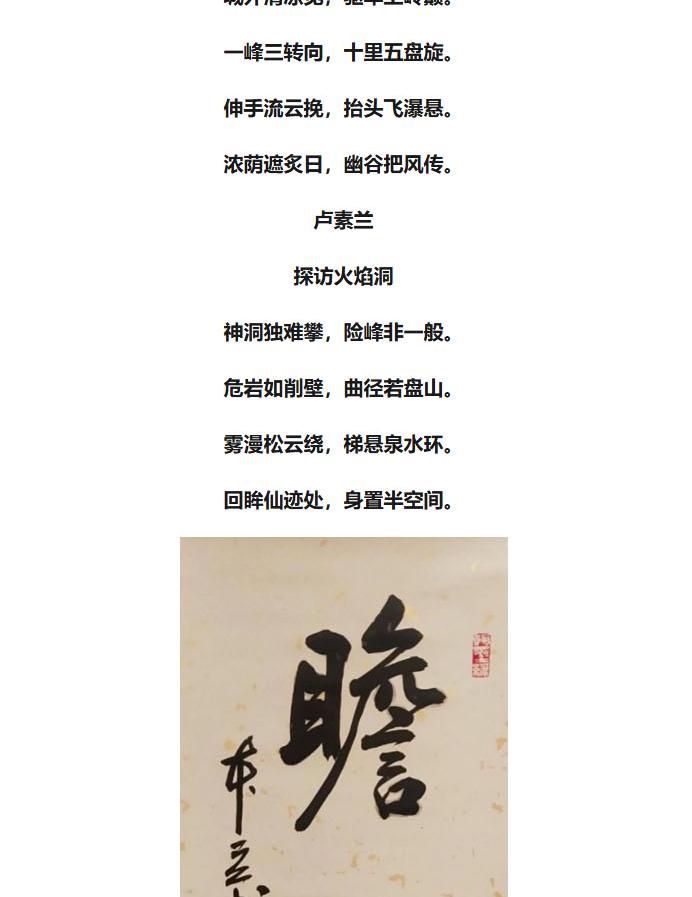 一峰三转向，十里五盘旋。
伸手流云挽，抬头飞瀑悬。
浓荫遮炙日，幽谷把风传。
卢素兰
探访火焰洞
神洞独难攀，险峰非一般。
危岩如削壁，曲径若盘山。
雾漫松云绕，梯悬泉水环。
回眸仙迹处，身置半空间。
瞻